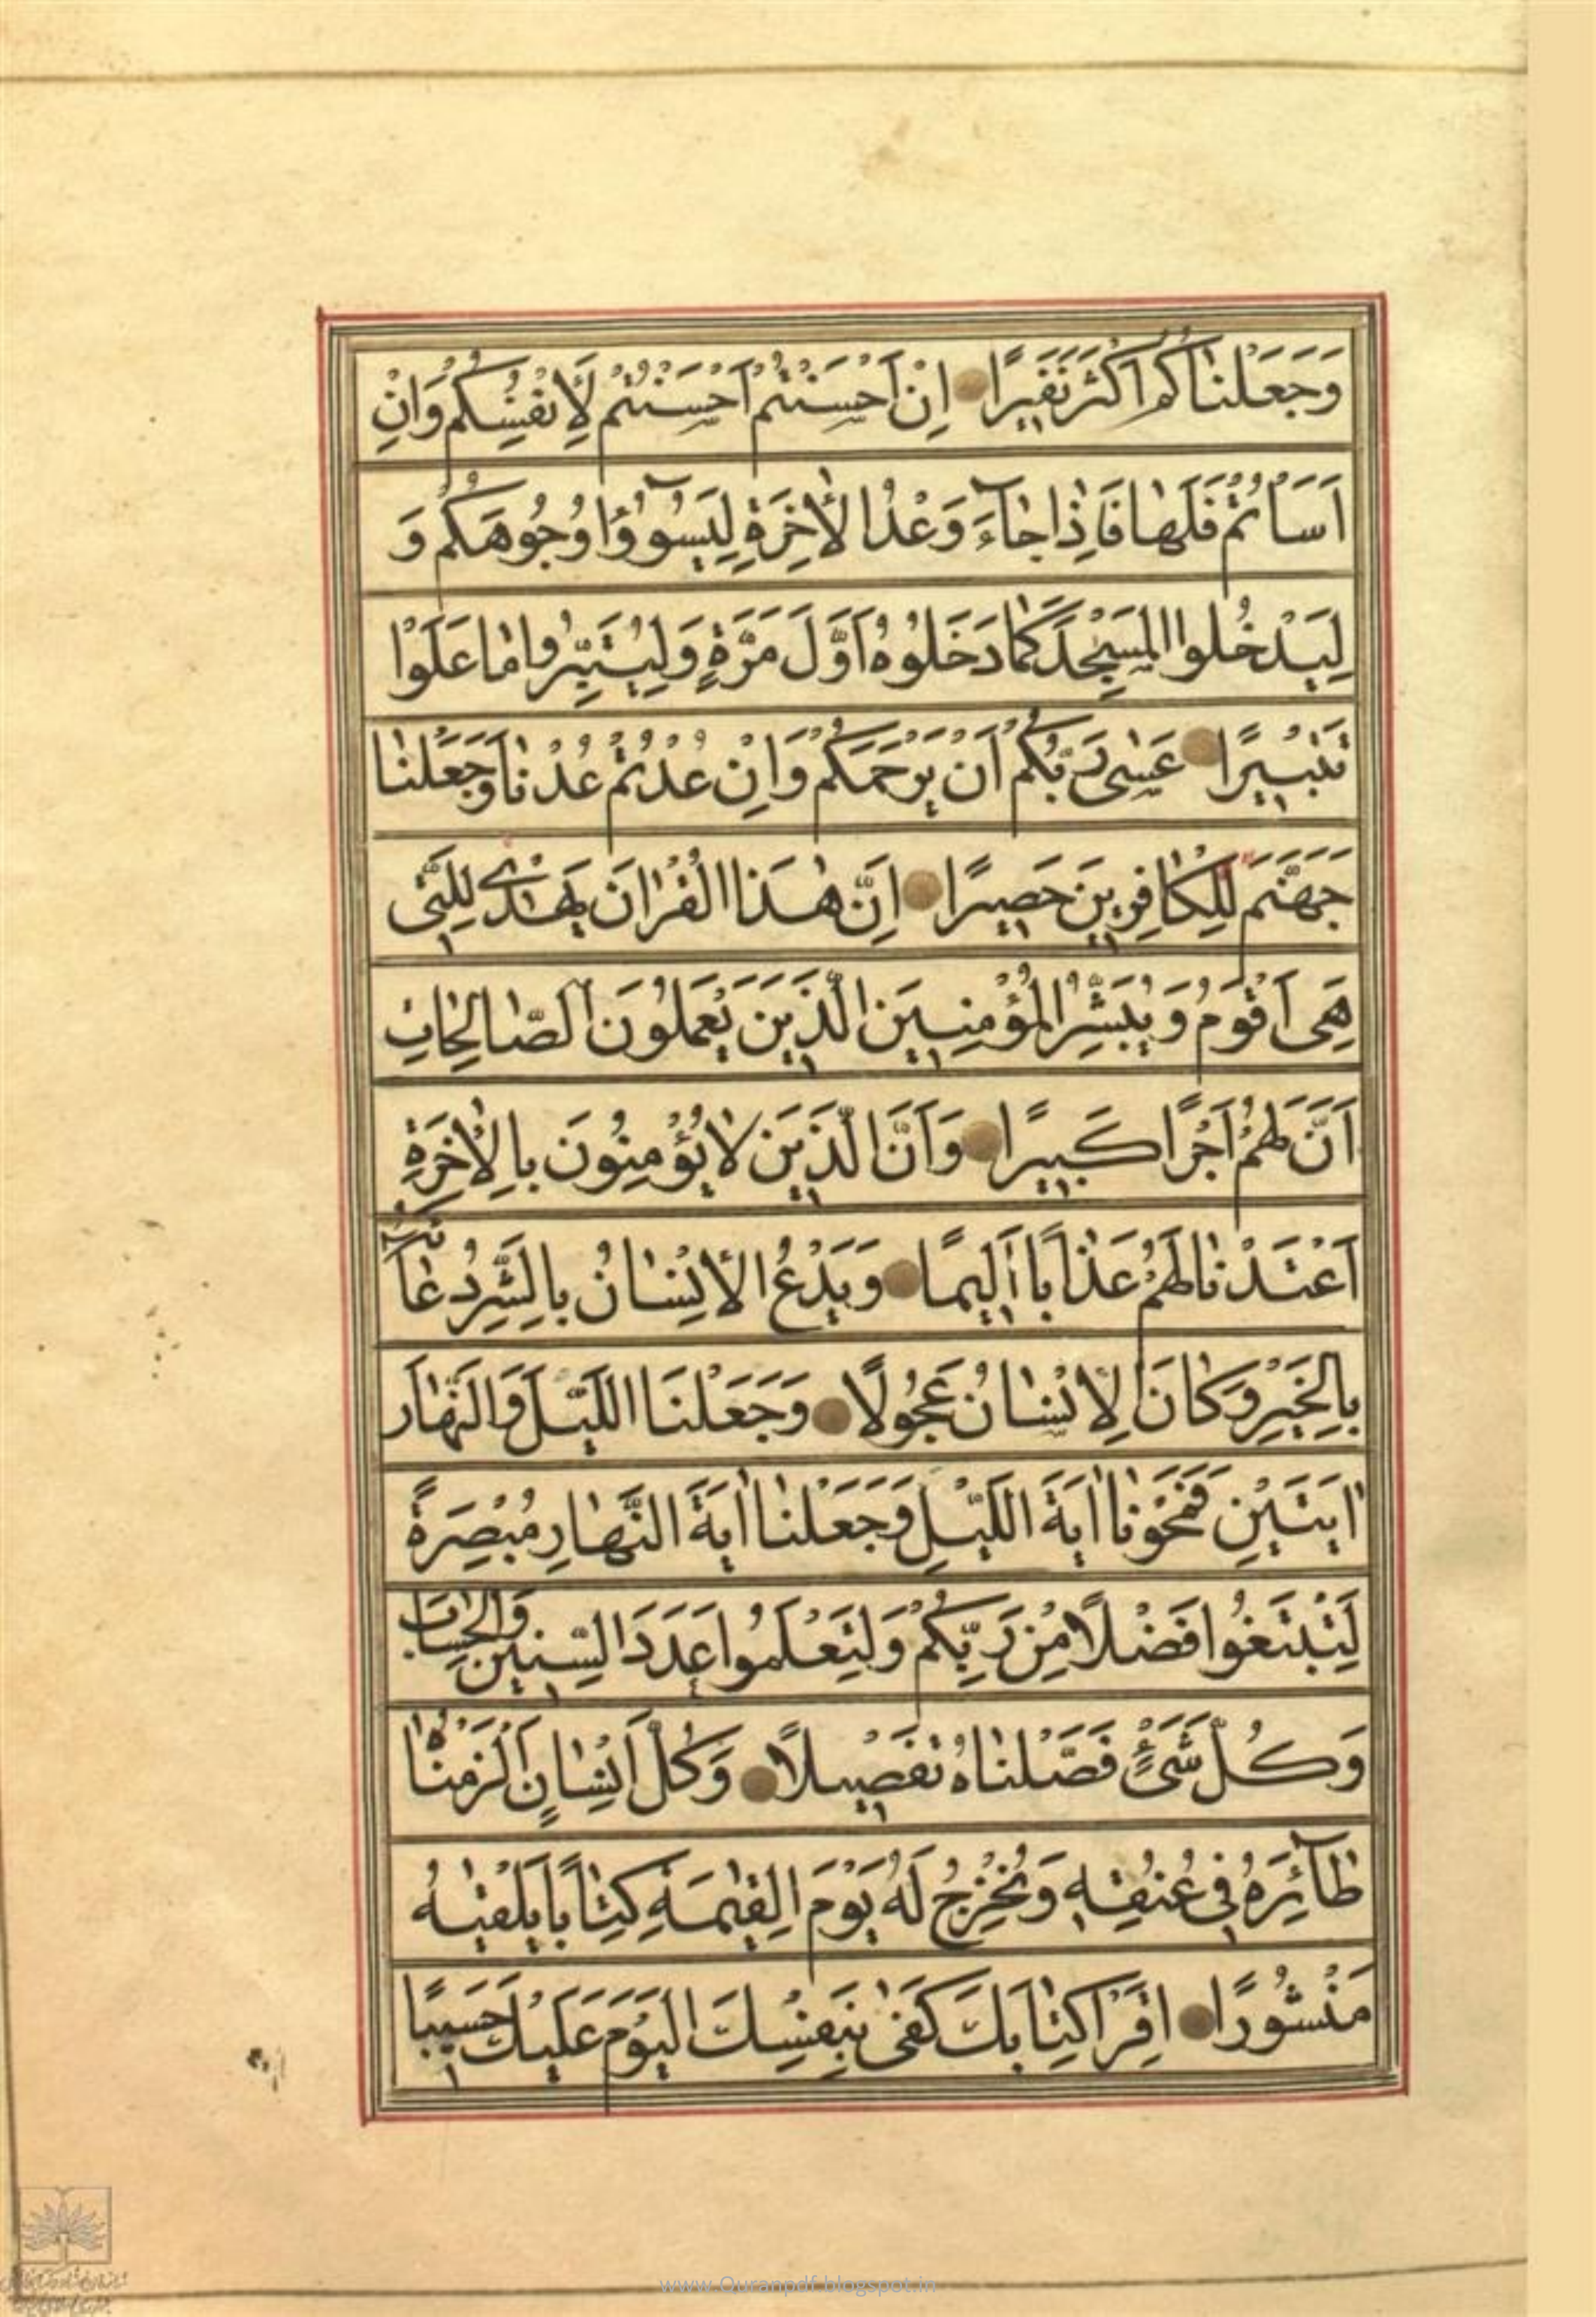 وَجَعَلْنٰاكُمْ اَكْثَرَ نَفِيرًا اِنْ اَحْسَنْتُمْ اَحْسَنْتُمْ لِاَنْفُسِكُمْ وَاِنْ
اَسَاْتُمْ فَلَهٰا فَاِذٰا جٰآءَ وَعْدُ الْاٰخِرَةِ لِيَسُوٓؤُا وُجُوهَكُمْ وَ
لِيَدْخُلُوا الْمَسْجِدَ كَمٰا دَخَلُوهُ اَوَّلَ مَرَّةٍ وَلِيُتَبِّرُوا مٰا عَلَوْا
تَتْبِيرًا عَسٰى رَبُّكُمْ اَنْ يَرْحَمَكُمْ وَاِنْ عُدْتُمْ عُدْنٰا وَجَعَلْنٰا
جَهَنَّمَ لِلْكٰافِرِينَ حَصِيرًا اِنَّ هٰذَا الْقُرْاٰنَ يَهْدٖى لِلَّتٖى
هِىَ اَقْوَمُ وَيُبَشِّرُ الْمُؤْمِنِينَ الَّذِينَ يَعْمَلُونَ الصّٰالِحٰاتِ
اَنَّ لَهُمْ اَجْرًا كَبِيرًا وَاَنَّ الَّذِينَ لٰا يُؤْمِنُونَ بِالْاٰخِرَةِ
اَعْتَدْنٰا لَهُمْ عَذٰابًا اَلِيمًا وَيَدْعُ الْاِنْسٰانُ بِالشَّرِّ دُعٰآءَهُ
بِالْخَيْرِ وَكٰانَ الْاِنْسٰانُ عَجُولًا وَجَعَلْنَا اللَّيْلَ وَالنَّهٰارَ
اٰيَتَيْنِ فَمَحَوْنٰا اٰيَةَ اللَّيْلِ وَجَعَلْنٰا اٰيَةَ النَّهٰارِ مُبْصِرَةً
لِتَبْتَغُوا فَضْلًا مِنْ رَبِّكُمْ وَلِتَعْلَمُوا عَدَدَ السِّنِينَ وَالْحِسٰابَ
وَكُلَّ شَىْءٍ فَصَّلْنٰاهُ تَفْصِيلًا وَكُلَّ اِنْسٰانٍ اَلْزَمْنٰاهُ
طٰآئِرَهُ فِى عُنُقِهِ وَنُخْرِجُ لَهُ يَوْمَ الْقِيٰمَةِ كِتٰابًا يَلْقٰيهُ
مَنْشُورًا اِقْرَاْ كِتٰابَكَ كَفٰى بِنَفْسِكَ الْيَوْمَ عَلَيْكَ حَسِيبًا
www.Quranpdf.blogspot.in